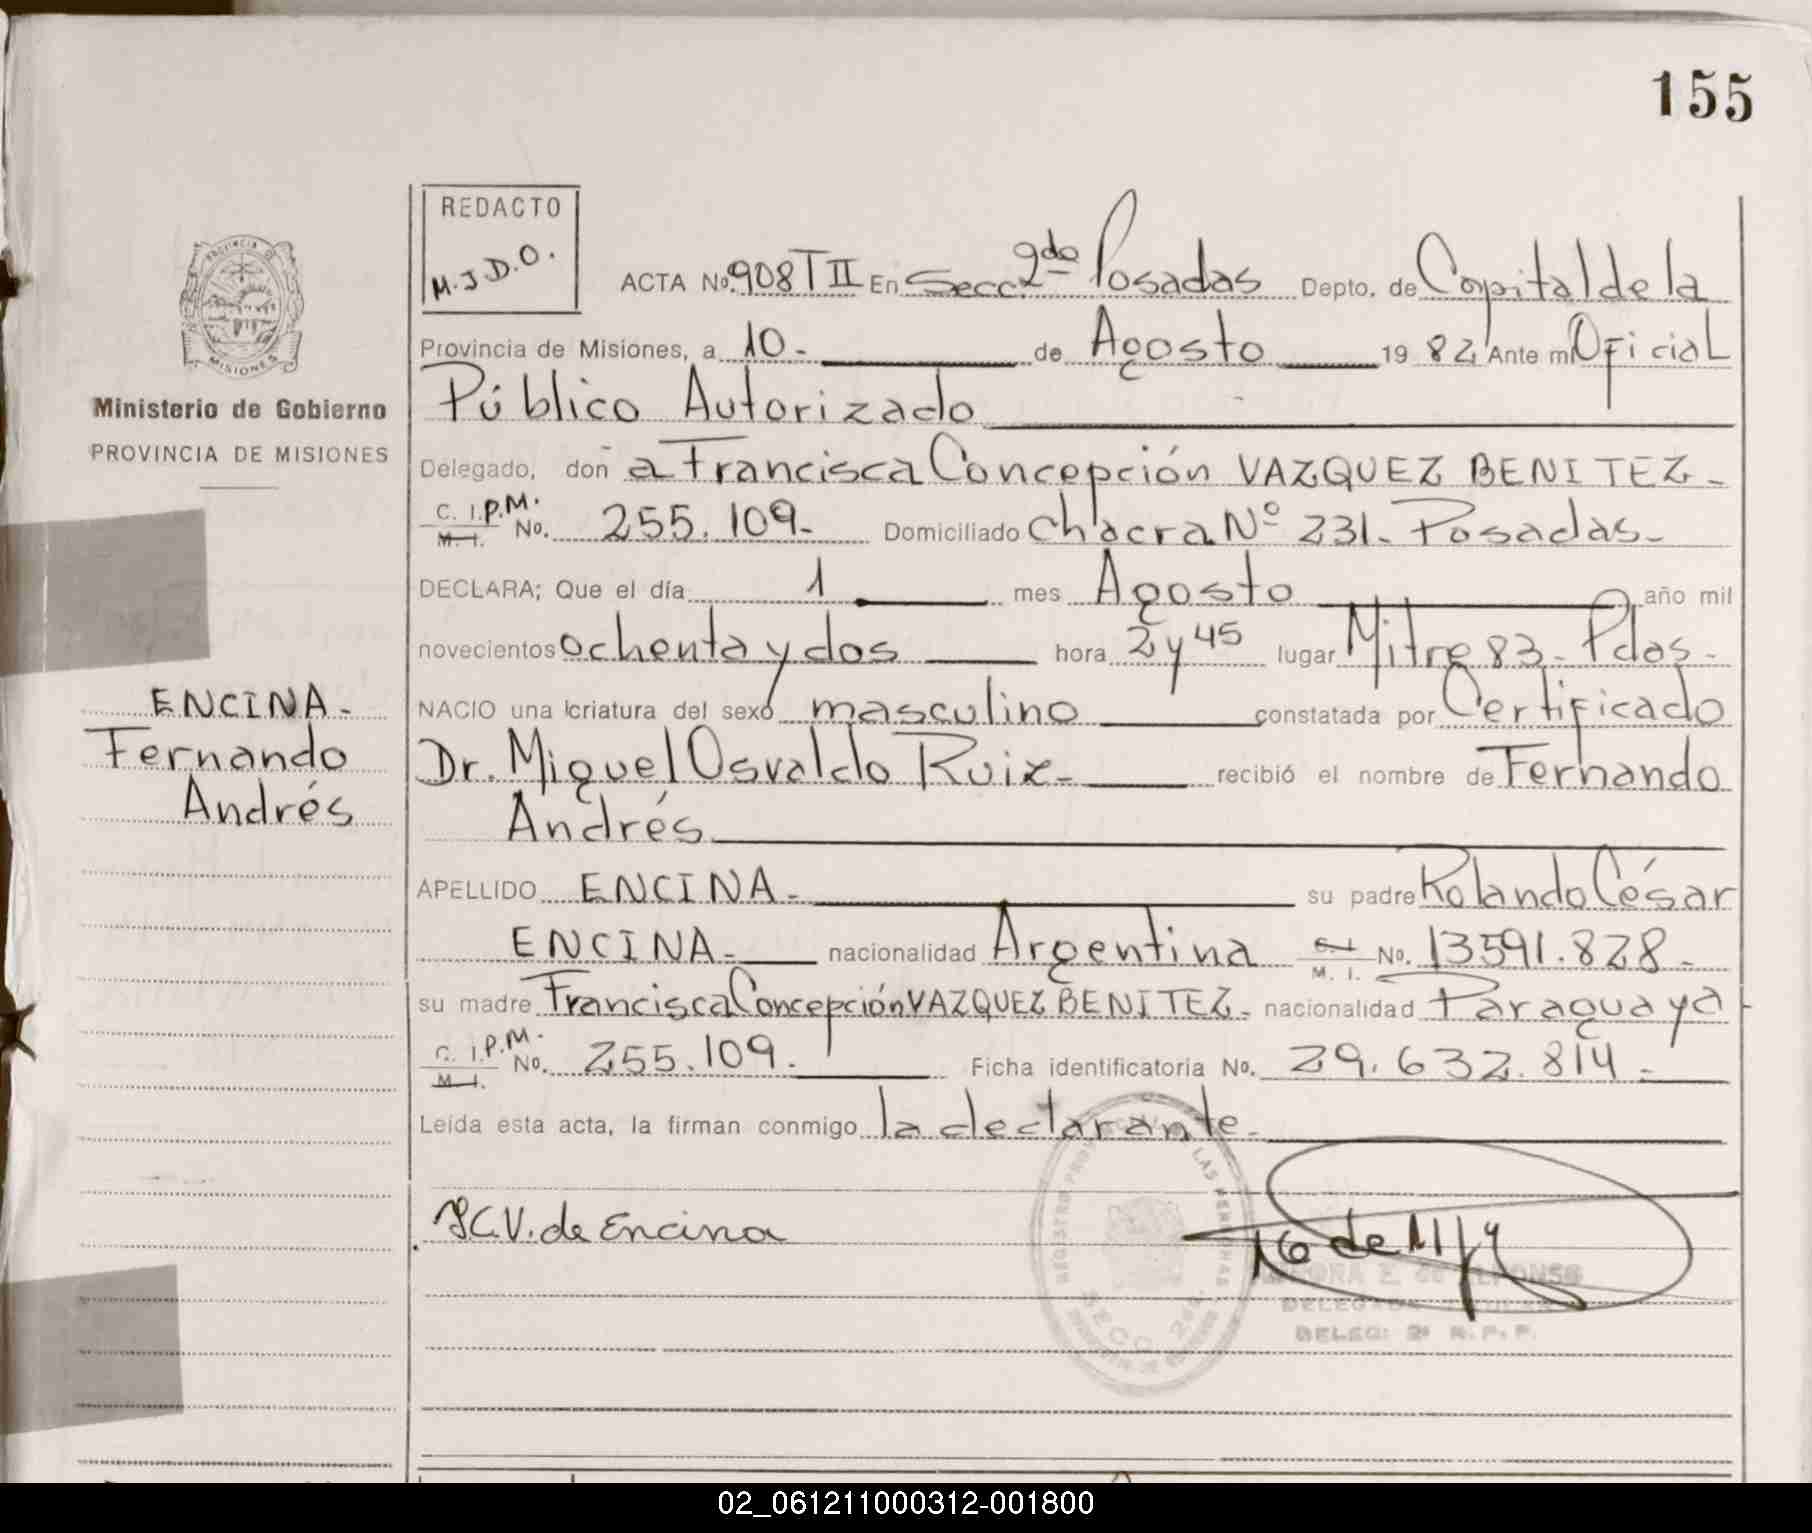 155
REDACTO
M.J D.O.
ACTA No. 908 T II En Secc. 2da Posadas Depto. de Capital de la
Provincia de Misiones, a 10.- de Agosto 1982 Ante mi Oficial
Público Autorizado
Delegado, don a Francisca Concepción VAZQUEZ BENITEZ-
C. I.P.M. M. I. No. 255.109.- Domiciliado Chacra Nº 231.- Posadas.-
DECLARA; Que el día 1 mes Agosto año mil
novecientos ochenta y dos hora 2 y 45 lugar Mitre 83- Pdas.-
NACIO una criatura del sexo masculino constatada por Certificado
Dr. Miguel Osvaldo Ruiz- recibió el nombre de Fernando
Andrés
APELLIDO ENCINA- su padre Rolando César
ENCINA- nacionalidad Argentina C. I. M. I. No. 13591.828-
su madre Francisca Concepción VAZQUEZ BENITEZ- nacionalidad Paraguaya-
C. I.P.M. M. I. No. 255.109.- Ficha identificatoria No. 29.632.814-
Leída esta acta, la firman conmigo la declarante-
F.C.V. de Encina
DELEG: 2ª R.P.P.
SECC. 2da.
PROVINCIA D
MISIONES
Ministerio de Gobierno
PROVINCIA DE MISIONES
ENCINA-
Fernando
Andrés
02_061211000312-001800